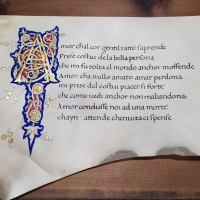 Amor chal cor gentil ratto saprende
Prese costui de la bella persona
che mi fu tolta el mondo anchor moffende
Amor cha nullo amato amar perdona
mi prese del costui piacer si forte
che come vedi anchor non mabandona.
Amor condusse noi ad una morte
chayn attende chenvita ci spense